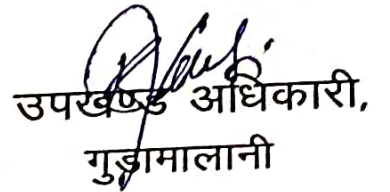 उपखण्ड अधिकारी,
गुड़ामालानी